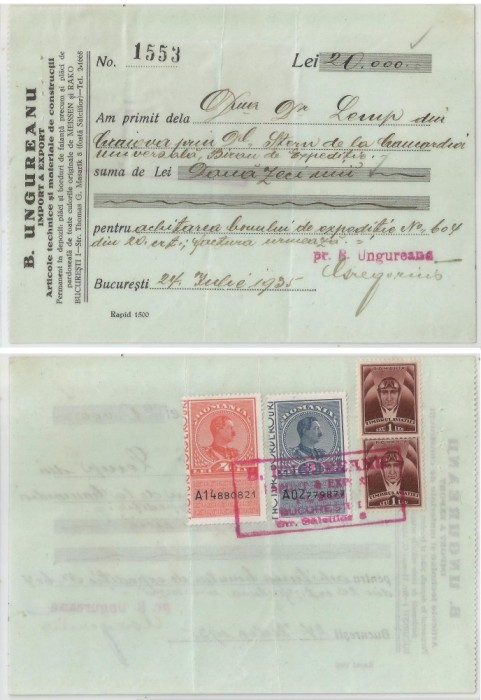 B. UNGUREANU
IMPORT & EXPORT
Articole technice și materiale de construcții
Permanent in depozit plăci și borduri de faianță precum și plăci de
pardoseală de toate culorile originale de MEISSEN și RAKO
BUCUREȘTI I-Str. Thomas G. Masarik 8 (fostă Sălciilor)-Tel.
No. 1553
Lei 20.000
Am primit dela Dlui Dr Lemp din
Craiova prin Dl Stern de la Concordia
universală, Birou de Expediție
suma de Lei Două zeci mii
pentru achitarea bonului de expediție No 604
din 20 crt. factura urmează
pr. B. Ungureanu
București 24 Iulie 1935
Rapid 1500
ROMANIA
4 LEI
A14880821
ROMANIA
A02779877
TIMBRUL AVIAȚIEI
1 LEU
TIMBRUL AVIAȚIEI
1 LEU
B. UNGUREANU
IMPORT & EXPORT
BUCUREȘTI I
Str. Salciilor 8